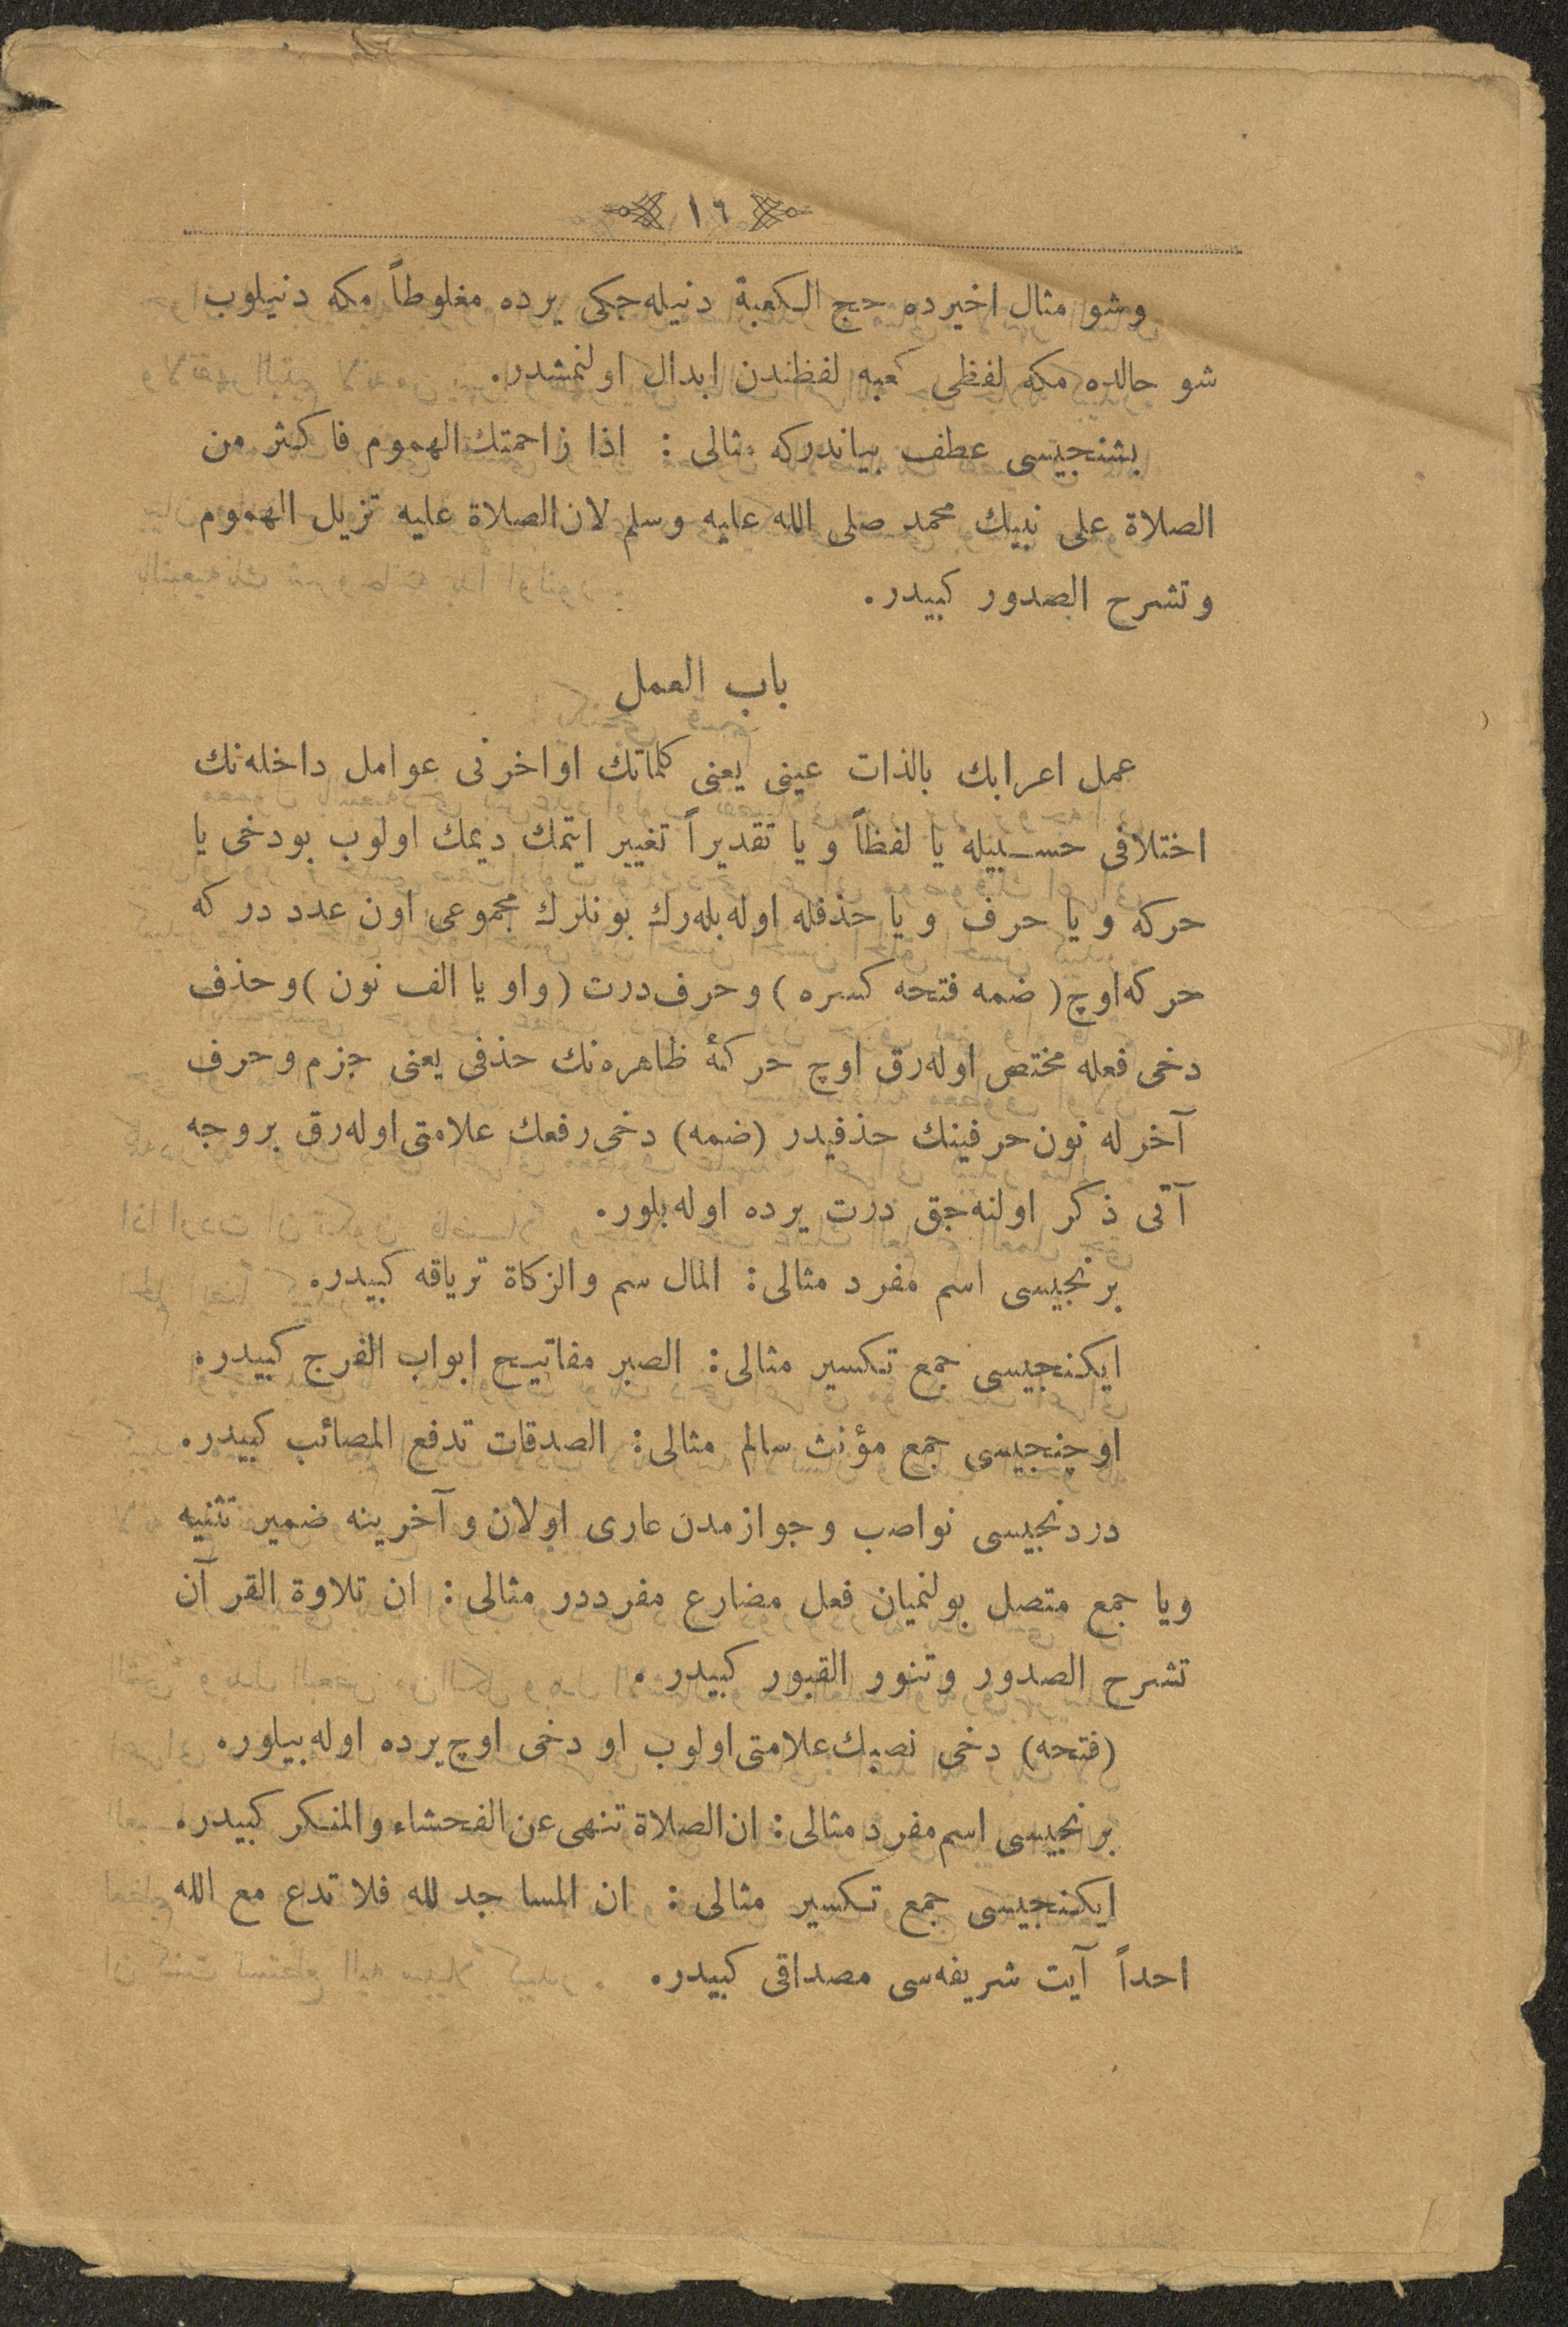 ١٦
وشو مثال اخيرده حج الكعبة دنيله‌جكى يرده مغلوطاً مكه دنيلوب
شو حالده مكه لفظى كعبه لفظندن ابدال اولنمشدر.
بشنجيسى عطف بياندركه مثالى : اذا زاحمتك الهموم فاكثر من
الصلاة على نبيك محمد صلى الله عليه وسلم لان الصلاة عليه تزيل الهموم
وتشرح الصدور كبيدر.
باب العمل
عمل اعرابك بالذات عينى يعنى كلماتك اواخرنى عوامل داخله‌نك
اختلافى حسبيله يا لفظاً ويا تقديراً تغيير ايتمك ديمك اولوب بودخى يا
حركه ويا حرف ويا حذفله اوله‌بله‌رك بونلرك مجموعى اون عدد در كه
حركه اوچ (ضمه فتحه كسره) وحرف درت (واو يا الف نون) وحذف
دخى فعله مختص اوله‌رق اوچ حركۀ ظاهره‌نك حذفى يعنى جزم وحرف
آخر له نون حرفينك حذفيدر (ضمه) دخى رفعك علامتى اوله‌رق بروجه
آتى ذكر اولنه‌جق درت يرده اوله‌بلور.
برنجيسى اسم مفرد مثالى: المال سم والزكاة ترياقه كبيدر.
ايكنجيسى جمع تكسير مثالى: الصبر مفاتيح ابواب الفرج كبيدر.
اوچنجيسى جمع مؤنث سالم مثالى: الصدقات تدفع المصائب كبيدر.
دردنجيسى نواصب وجوازمدن عارى اولان وآخرينه ضمير تثنيه
ويا جمع متصل بولنميان فعل مضارع مفرددر مثالى : ان تلاوة القرآن
تشرح الصدور وتنور القبور كبيدر.
(فتحه) دخى نصبك علامتى اولوب او دخى اوچ يرده اوله‌بيلور.
برنجيسى اسم مفرد مثالى: ان الصلاة تنهى عن الفحشاء والمنكر كبيدر.
ايكنجيسى جمع تكسير مثالى : ان المساجد لله فلا تدع مع الله
احداً آيت شريفه‌سى مصداقى كبيدر.